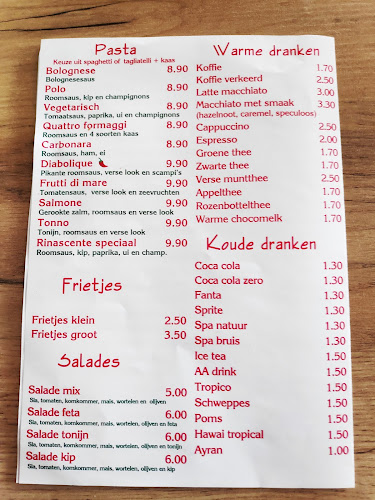 Pasta
Keuze uit spaghetti of tagliatelli + kaas
Bolognese 8.90
Bolognesesaus
Polo 8.90
Roomsaus, kip en champignons
Vegetarisch 8.90
Tomaatsaus, paprika, ui en champignons
Quattro formaggi 8.90
Roomsaus en 4 soorten kaas
Carbonara 8.90
Roomsaus, ham, ei
Diabolique 9.90
Pikante roomsaus, verse look en scampi's
Frutti di mare 9.90
Tomatensaus, verse look en zeevruchten
Salmone 9.90
Gerookte zalm, roomsaus en verse look
Tonno 9.90
Tonijn, roomsaus en verse look
Rinascente speciaal 9.90
Roomsaus, kip, paprika, ui en champ.
Frietjes
Frietjes klein 2.50
Frietjes groot 3.50
Salades
Salade mix 5.00
Sla, tomaten, komkommer, mais, wortelen en olijven
Salade feta 6.00
Sla, tomaten, komkommer, mais, wortelen, olijven en feta
Salade tonijn 6.00
Sla, tomaten, komkommer, mais, wortelen, olijven en tonijn
Salade kip 6.00
Sla, tomaten, komkommer, mais, wortelen, olijven en kip
Warme dranken
Koffie 1.70
Koffie verkeerd 2.50
Latte macchiato 3.00
Macchiato met smaak 3.30
(hazelnoot, caramel, speculoos)
Cappuccino 2.50
Espresso 2.00
Groene thee 1.70
Zwarte thee 1.70
Verse muntthee 2.50
Appelthee 1.70
Rozenbottelthee 1.70
Warme chocomelk 1.70
Koude dranken
Coca cola 1.30
Coca cola zero 1.30
Fanta 1.30
Sprite 1.30
Spa natuur 1.30
Spa bruis 1.30
Ice tea 1.50
AA drink 1.50
Tropico 1.50
Schweppes 1.50
Poms 1.50
Hawai tropical 1.50
Ayran 1.00